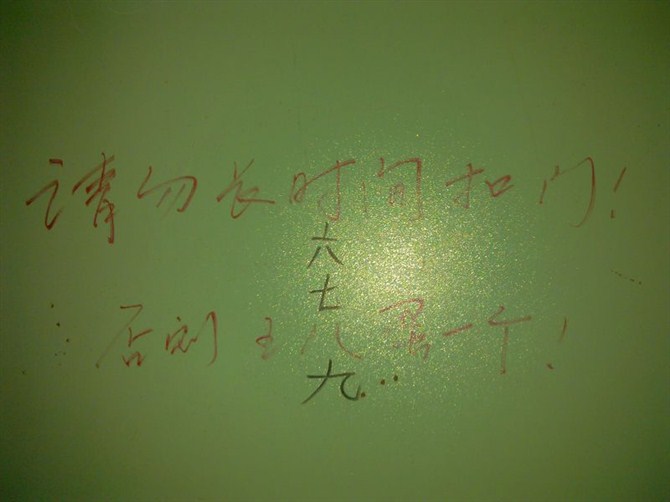 请勿长时间扣门!
六
七
否则王八蛋一个!
九...